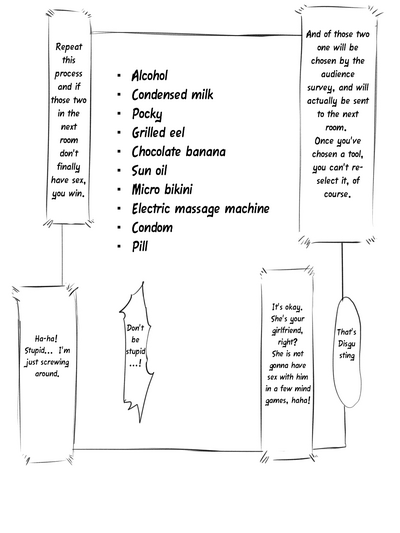 And of those two
one will be
chosen by the
audience
survey, and will
actually be sent
to the next
room.
Once you've
chosen a tool,
you can't re-
select it, of
course.
Alcohol
Condensed milk
Pocky
Grilled eel
Chocolate banana
Sun oil
Micro bikini
Electric massage machine
Condom
Pill
Repeat
this
process
and if
those two
in the
next
room
don't
finally
have sex,
you win.
That's
Disgu
sting
It's okay.
She's your
girlfriend,
right?
She is not
gonna have
sex with him
in a few mind
games, haha!
Don't
be
stupid
...!
Ha-ha!
Stupid... I'm
just screwing
around.